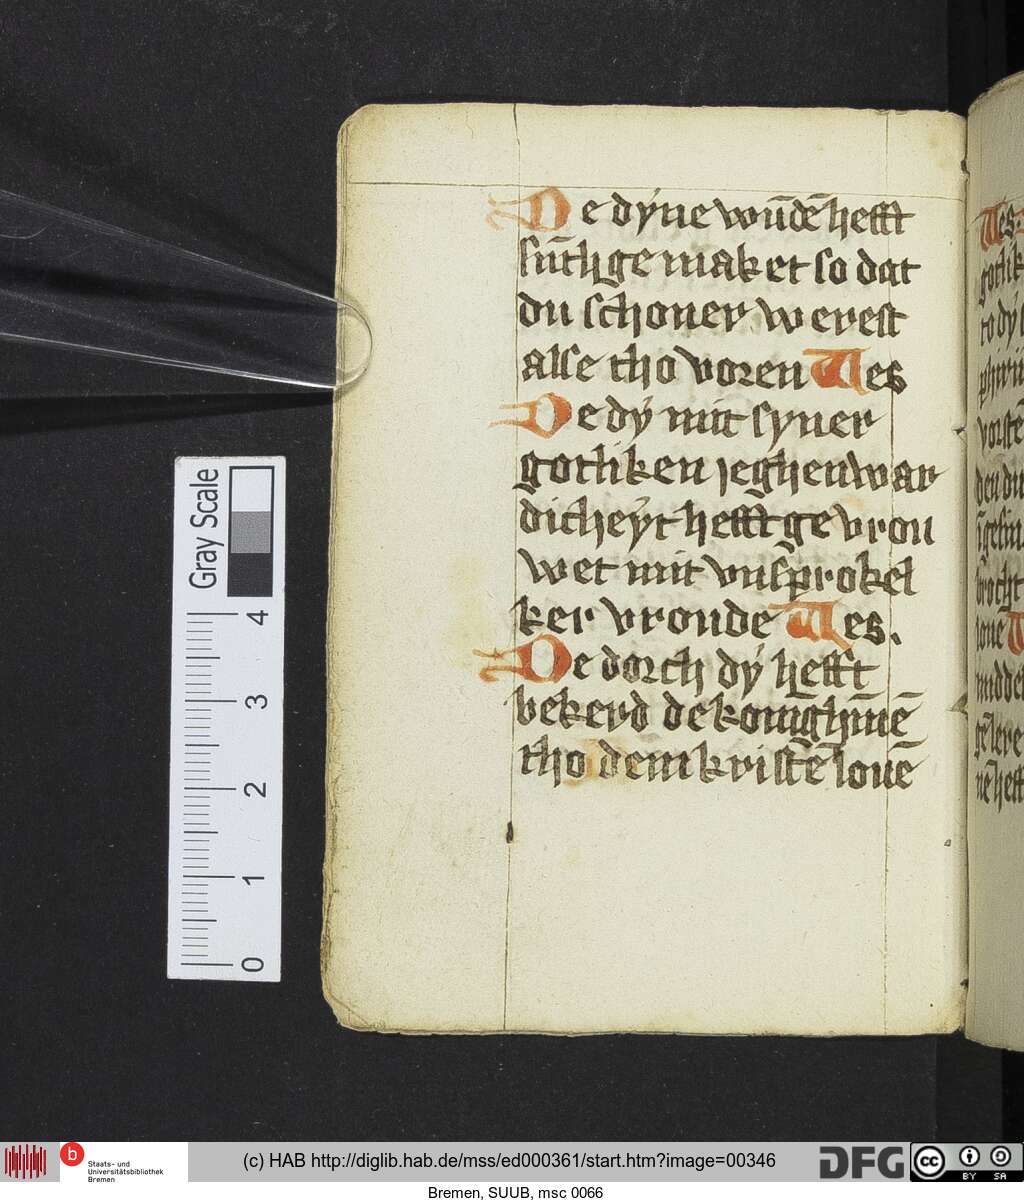 De dyne wūdē hefft
sūthge maket so dat
du schoner werest
alse tho voren Wes
De dy mit syner
gotliken jeghenwar
dicheyt hefft ge vrou
wet mit vnsprokel
ker vroude Wes.
De dorch dy hefft
bekerd de konīghīnē
tho dem kristē louē
Wes
gotlik
to dy
vorstē
den du
brocht
loue
midde
nē heff
Gray Scale
4
3
2
1
0
b
Staats- und
Universitätsbibliothek
Bremen
(c) HAB http://diglib.hab.de/mss/ed000361/start.htm?image=00346
DFG
cc
BY SA
Bremen, SUUB, msc 0066